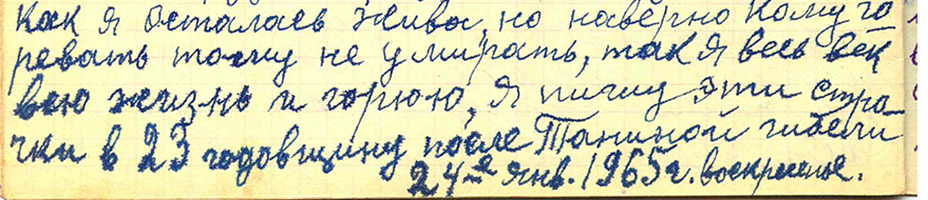 как я осталась жива, но наверно кому го
ревать тому не умирать, так я весь век
всю жизнь и горюю, я пишу эти стро
чки в 23 годовщину после Таниной гибели
24-е янв. 1965 г. воскресенье.